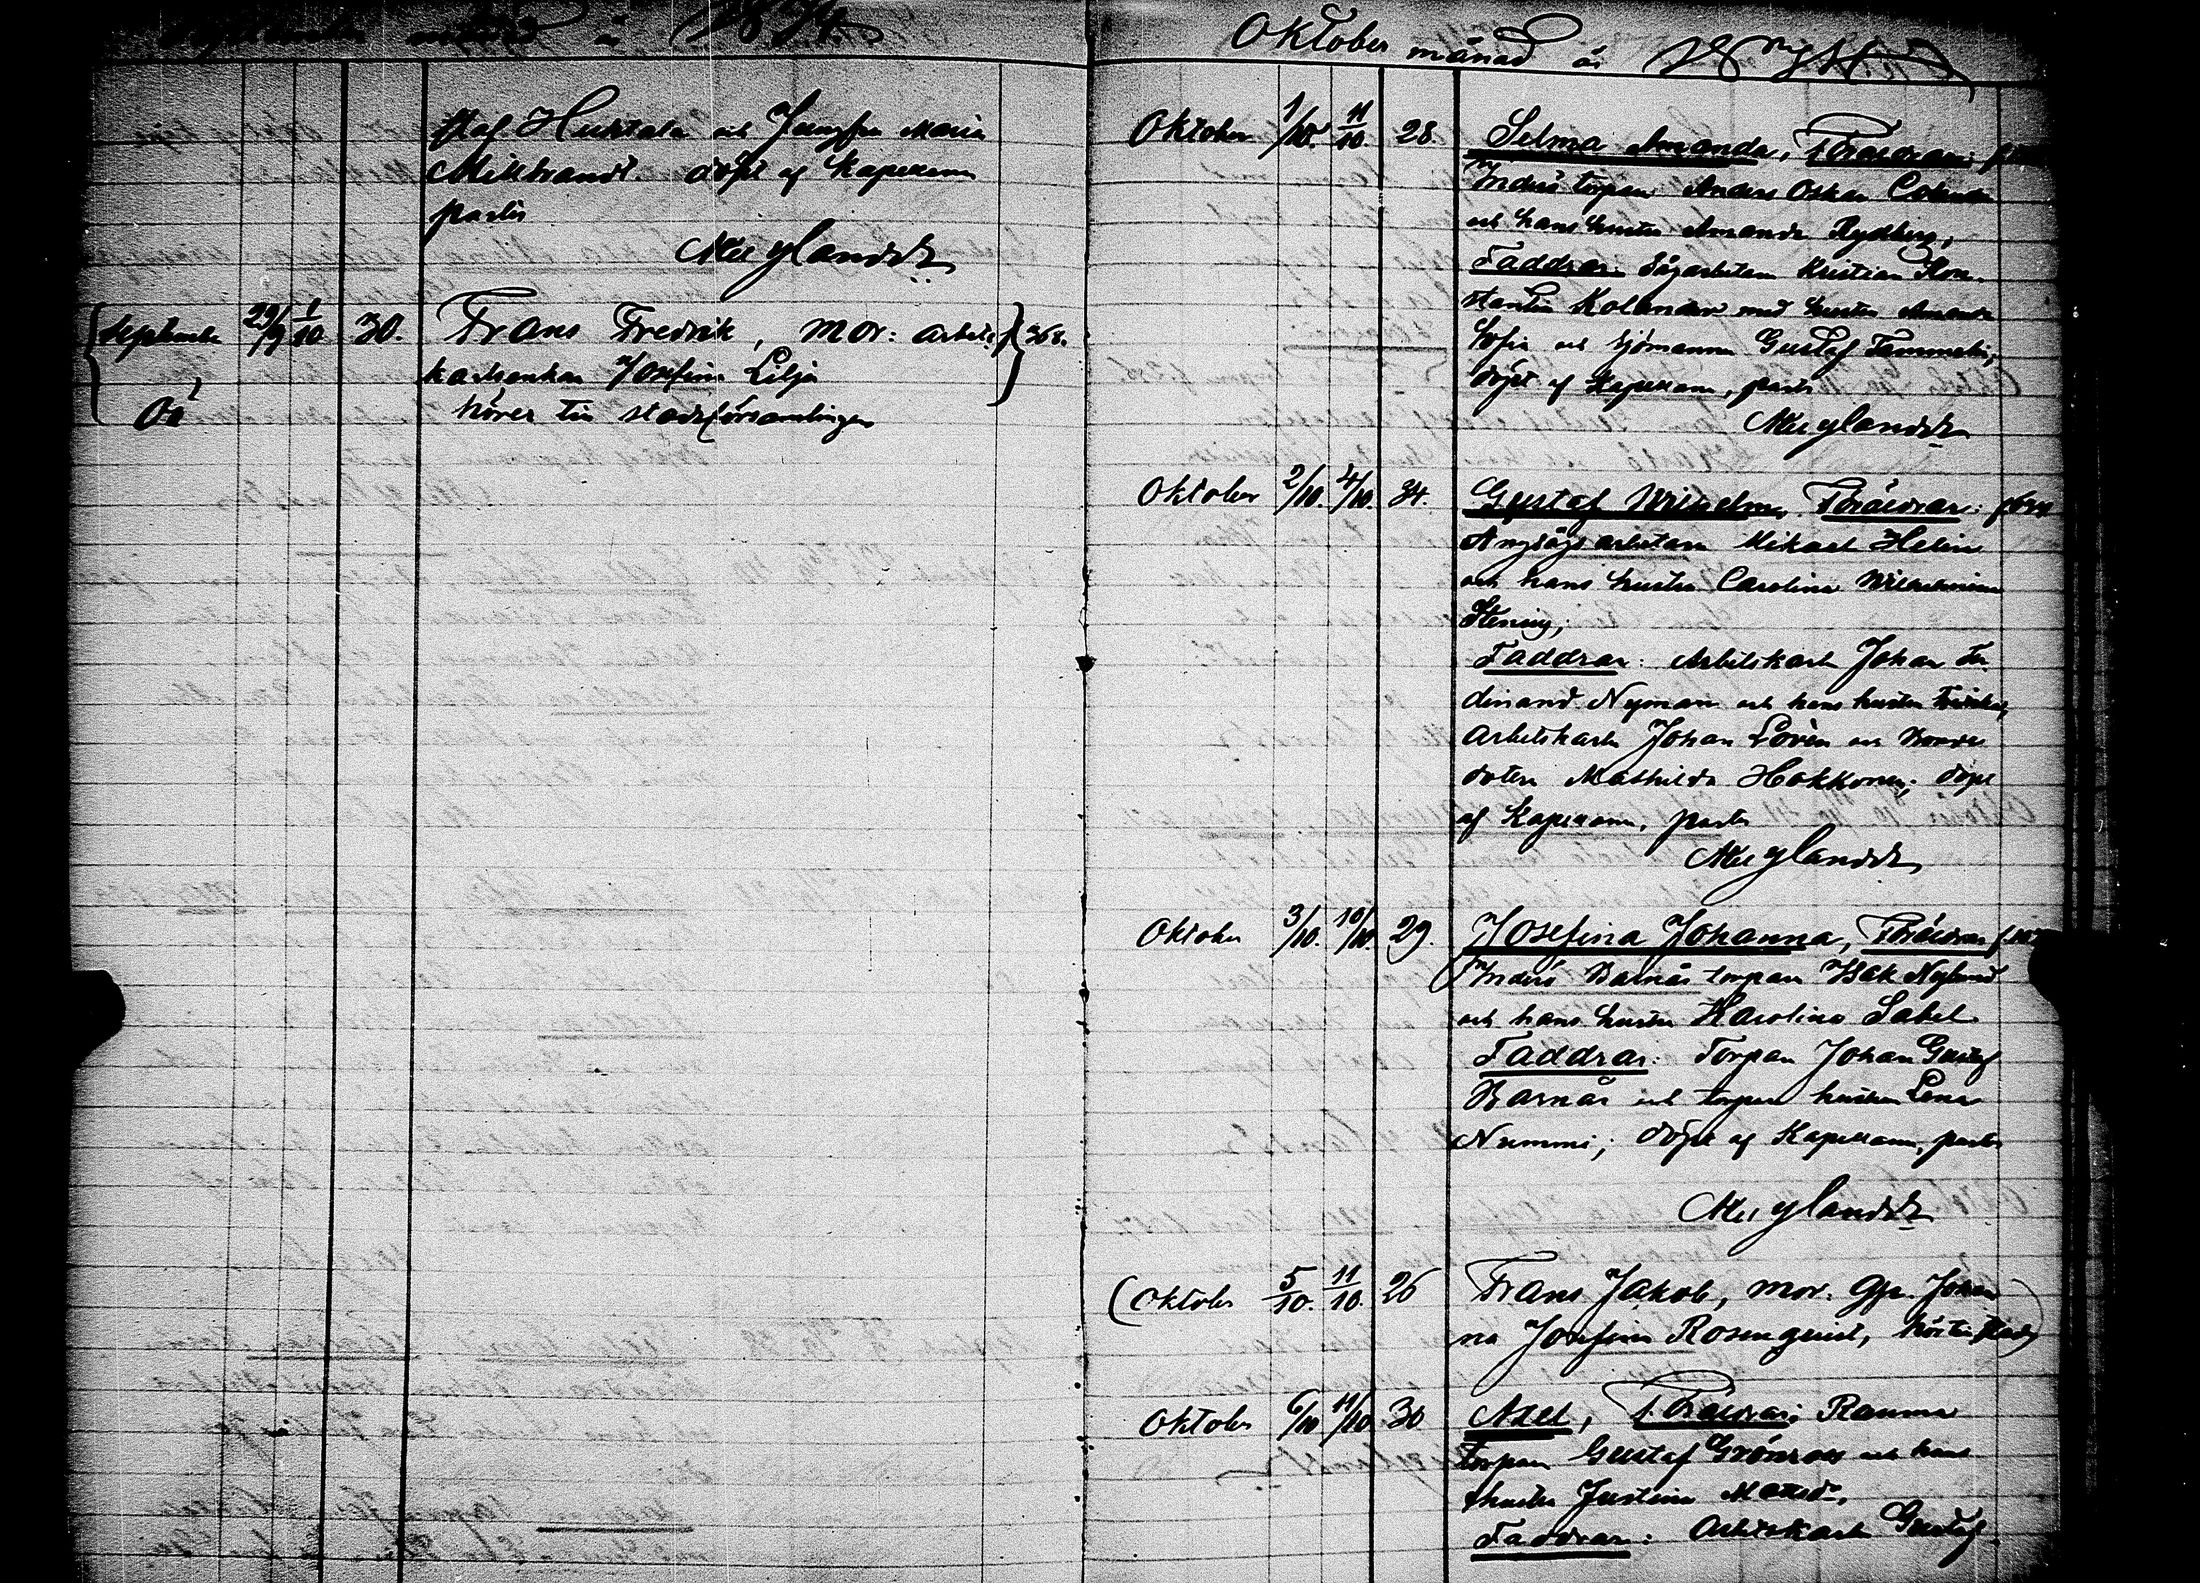 September månad år 1894
staf Huktala och Jungfru Maria
Millbrandt. döpt af Kapellanen
pastis
Nylandch
September 29/9 1/10 30. Frans Fredrik, mor: arbets f 368.
karlsenkan Josefina Lilja
Oä hörer till stadsförsamlingen
Oktober månad år 1894
Oktober 1/10. 11/10. 28. Selma Amanda, Föräldrar:
Inderö torpare Anders Oskar
och hans hustru Amanda Rydberg;
Faddrar: Sågarbetaren Kristian Kon-
stantin Kolander med hustru Amanda
Sofia och sjömannen Gustaf Tammelin,
döpt af Kapellanen, pastis
Nylandch
Oktober 2/10. 4/10. 34. Gustaf Wilhelm, Föräldrar:
Ångsågs arbetaren Mikael Helin
och hans hustru Carolina Wilhelmina
Stening;
Faddrar: Arbetskarlen Johan Fer-
dinand Nyman och hans hustru Fredrika,
Arbetskarlen Johan Lovén och Bonde
dotern Mathilda Hokkonen; döpt
af Kapellanen, pastis
Nylandch
Oktober 3/10. 10/10. 29. Josefina Johanna, Föräldrar
Inderö Barnäs torpare Isak Nylund
och hans hustru Karolina Sabel
Faddrar: Torparen Johan Gustaf
Barnäs och torpare hustrun Lena
Nummi; döpt af Kapellanen, pastis
Nylandch
(Oktober 5/10. 11/10. 26 Frans Jakob, mor. Johan
na Josefina Rosenqvist, hör till stads)
Oktober 6/10 11/10 30 Axel, Föräldrar: Rauma
torpare Gustaf Grönroos och hans
hustru Justina
Faddrar: Arbetskarlen Gustaf